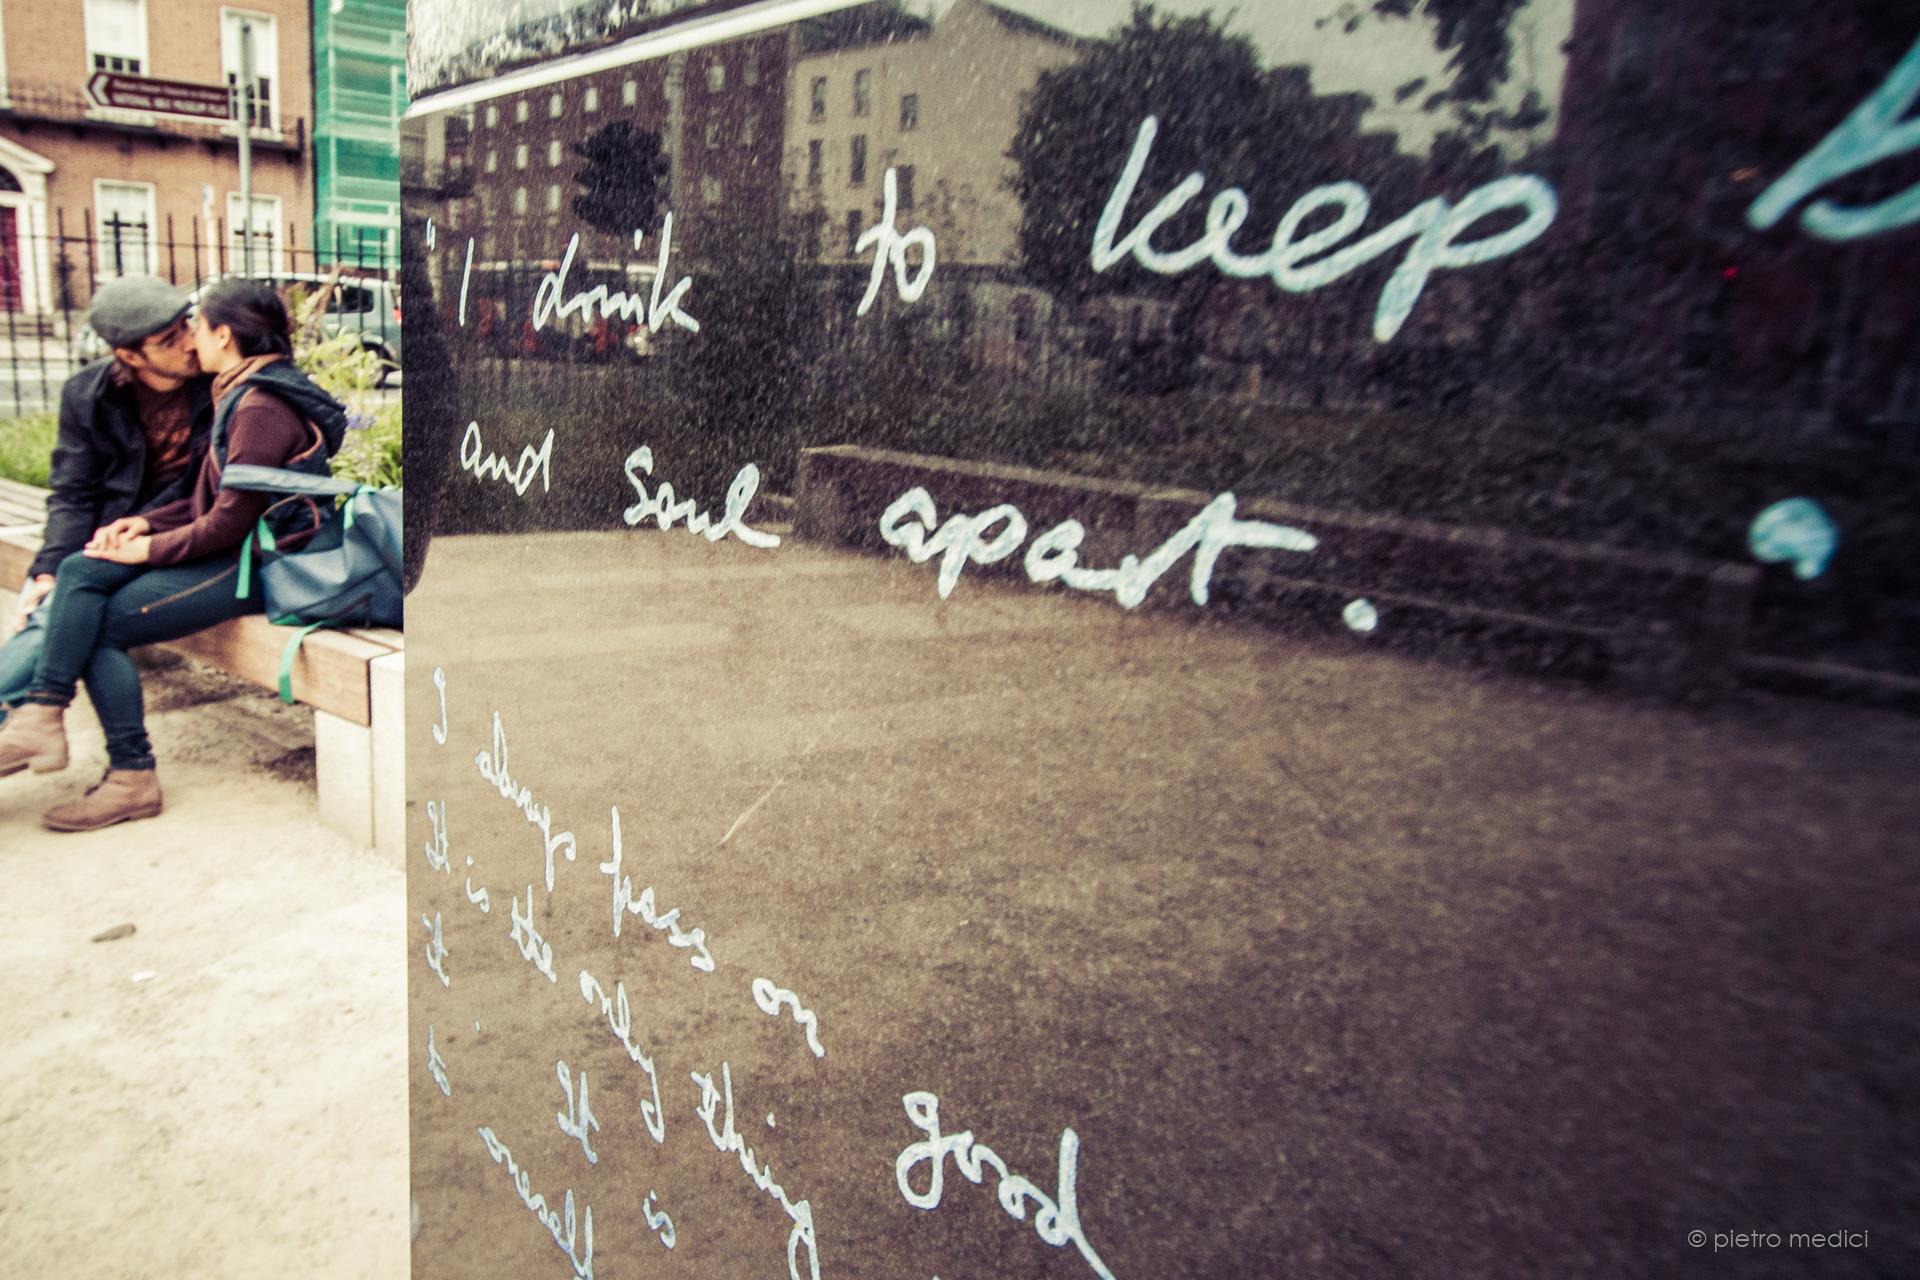 "I drink to keep b
and soul apart.
I always pass on good
It is the only thing
it is
oneself
NATIONAL WAX MUSEUM PLUS
© pietro medici